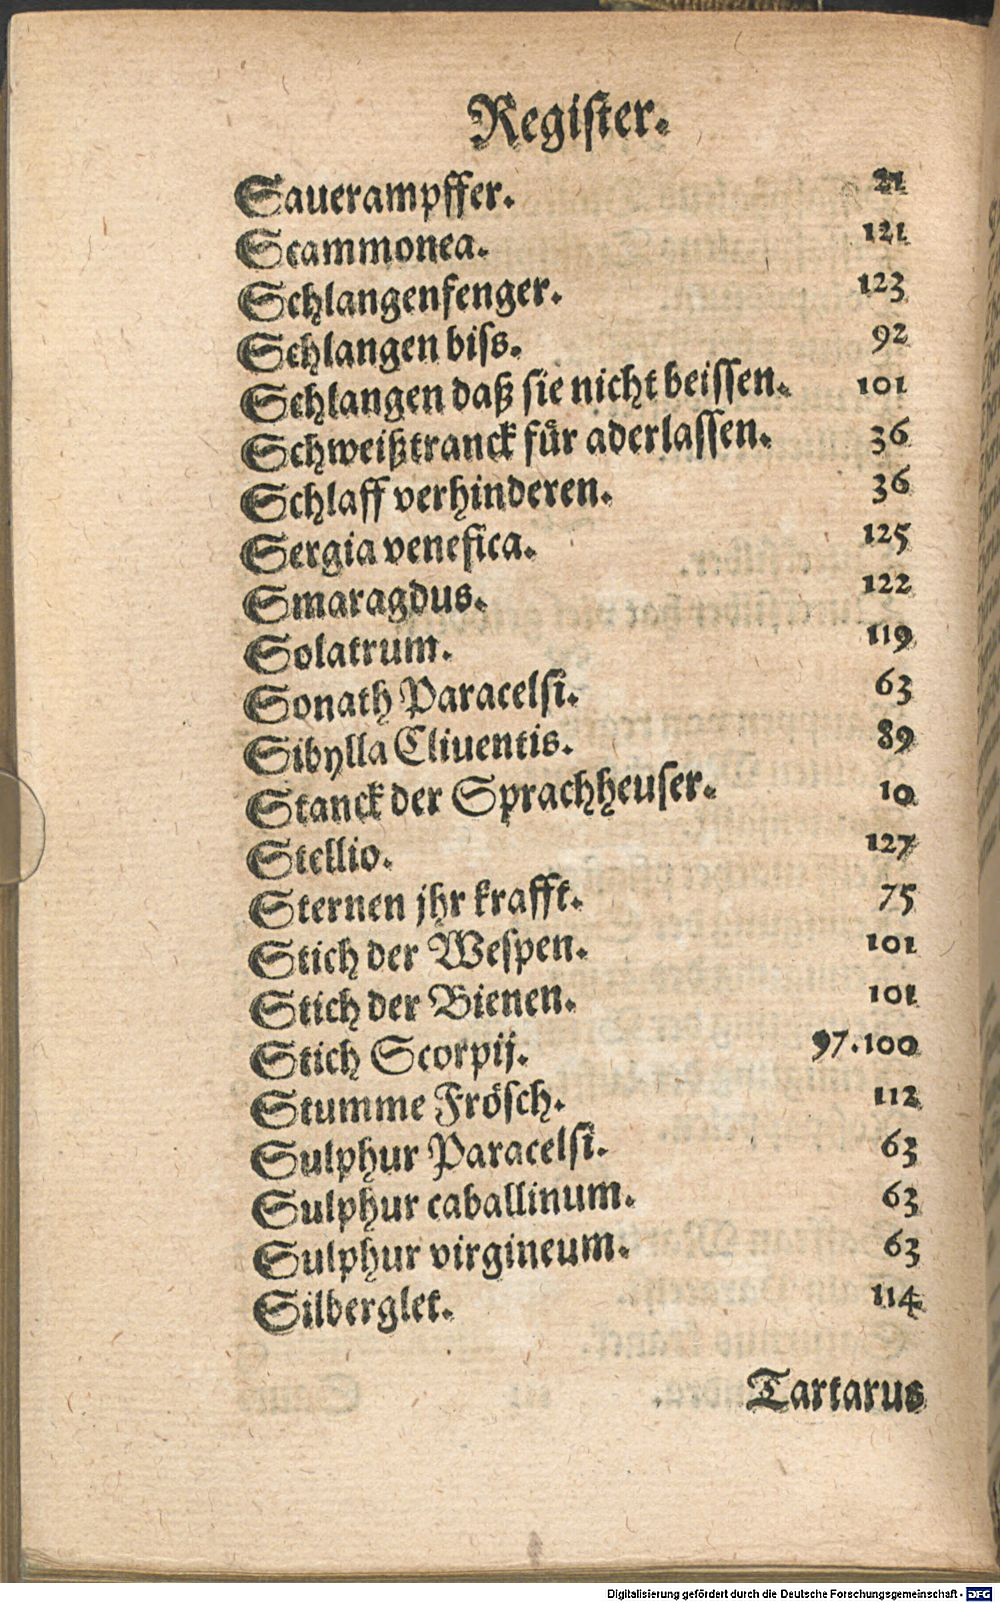 Regiſter.
Sauerampffer. 21
Scammonea. 121
Schlangenfenger. 123
Schlangen biſs. 92
Schlangen daß ſie nicht beiſſen. 101
Schweißtranck für aderlaſſen. 36
Schlaff verhinderen. 36
Sergia venefica. 125
Smaragdus. 122
Solatrum. 119
Sonath Paracelſi. 63
Sibylla Cliuentis. 89
Stanck der Sprachheuſer. 10
Stellio. 127
Sternen jhr krafft. 75
Stich der Weſpen. 101
Stich der Bienen. 101
Stich Scorpij. 97.100
Stumme Fröſch. 112
Sulphur Paracelſi. 63
Sulphur caballinum. 63
Sulphur virgineum. 63
Silberglet. 114
Tartarus
Digitalisierung gefördert durch die Deutsche Forschungsgemeinschaft - DFG